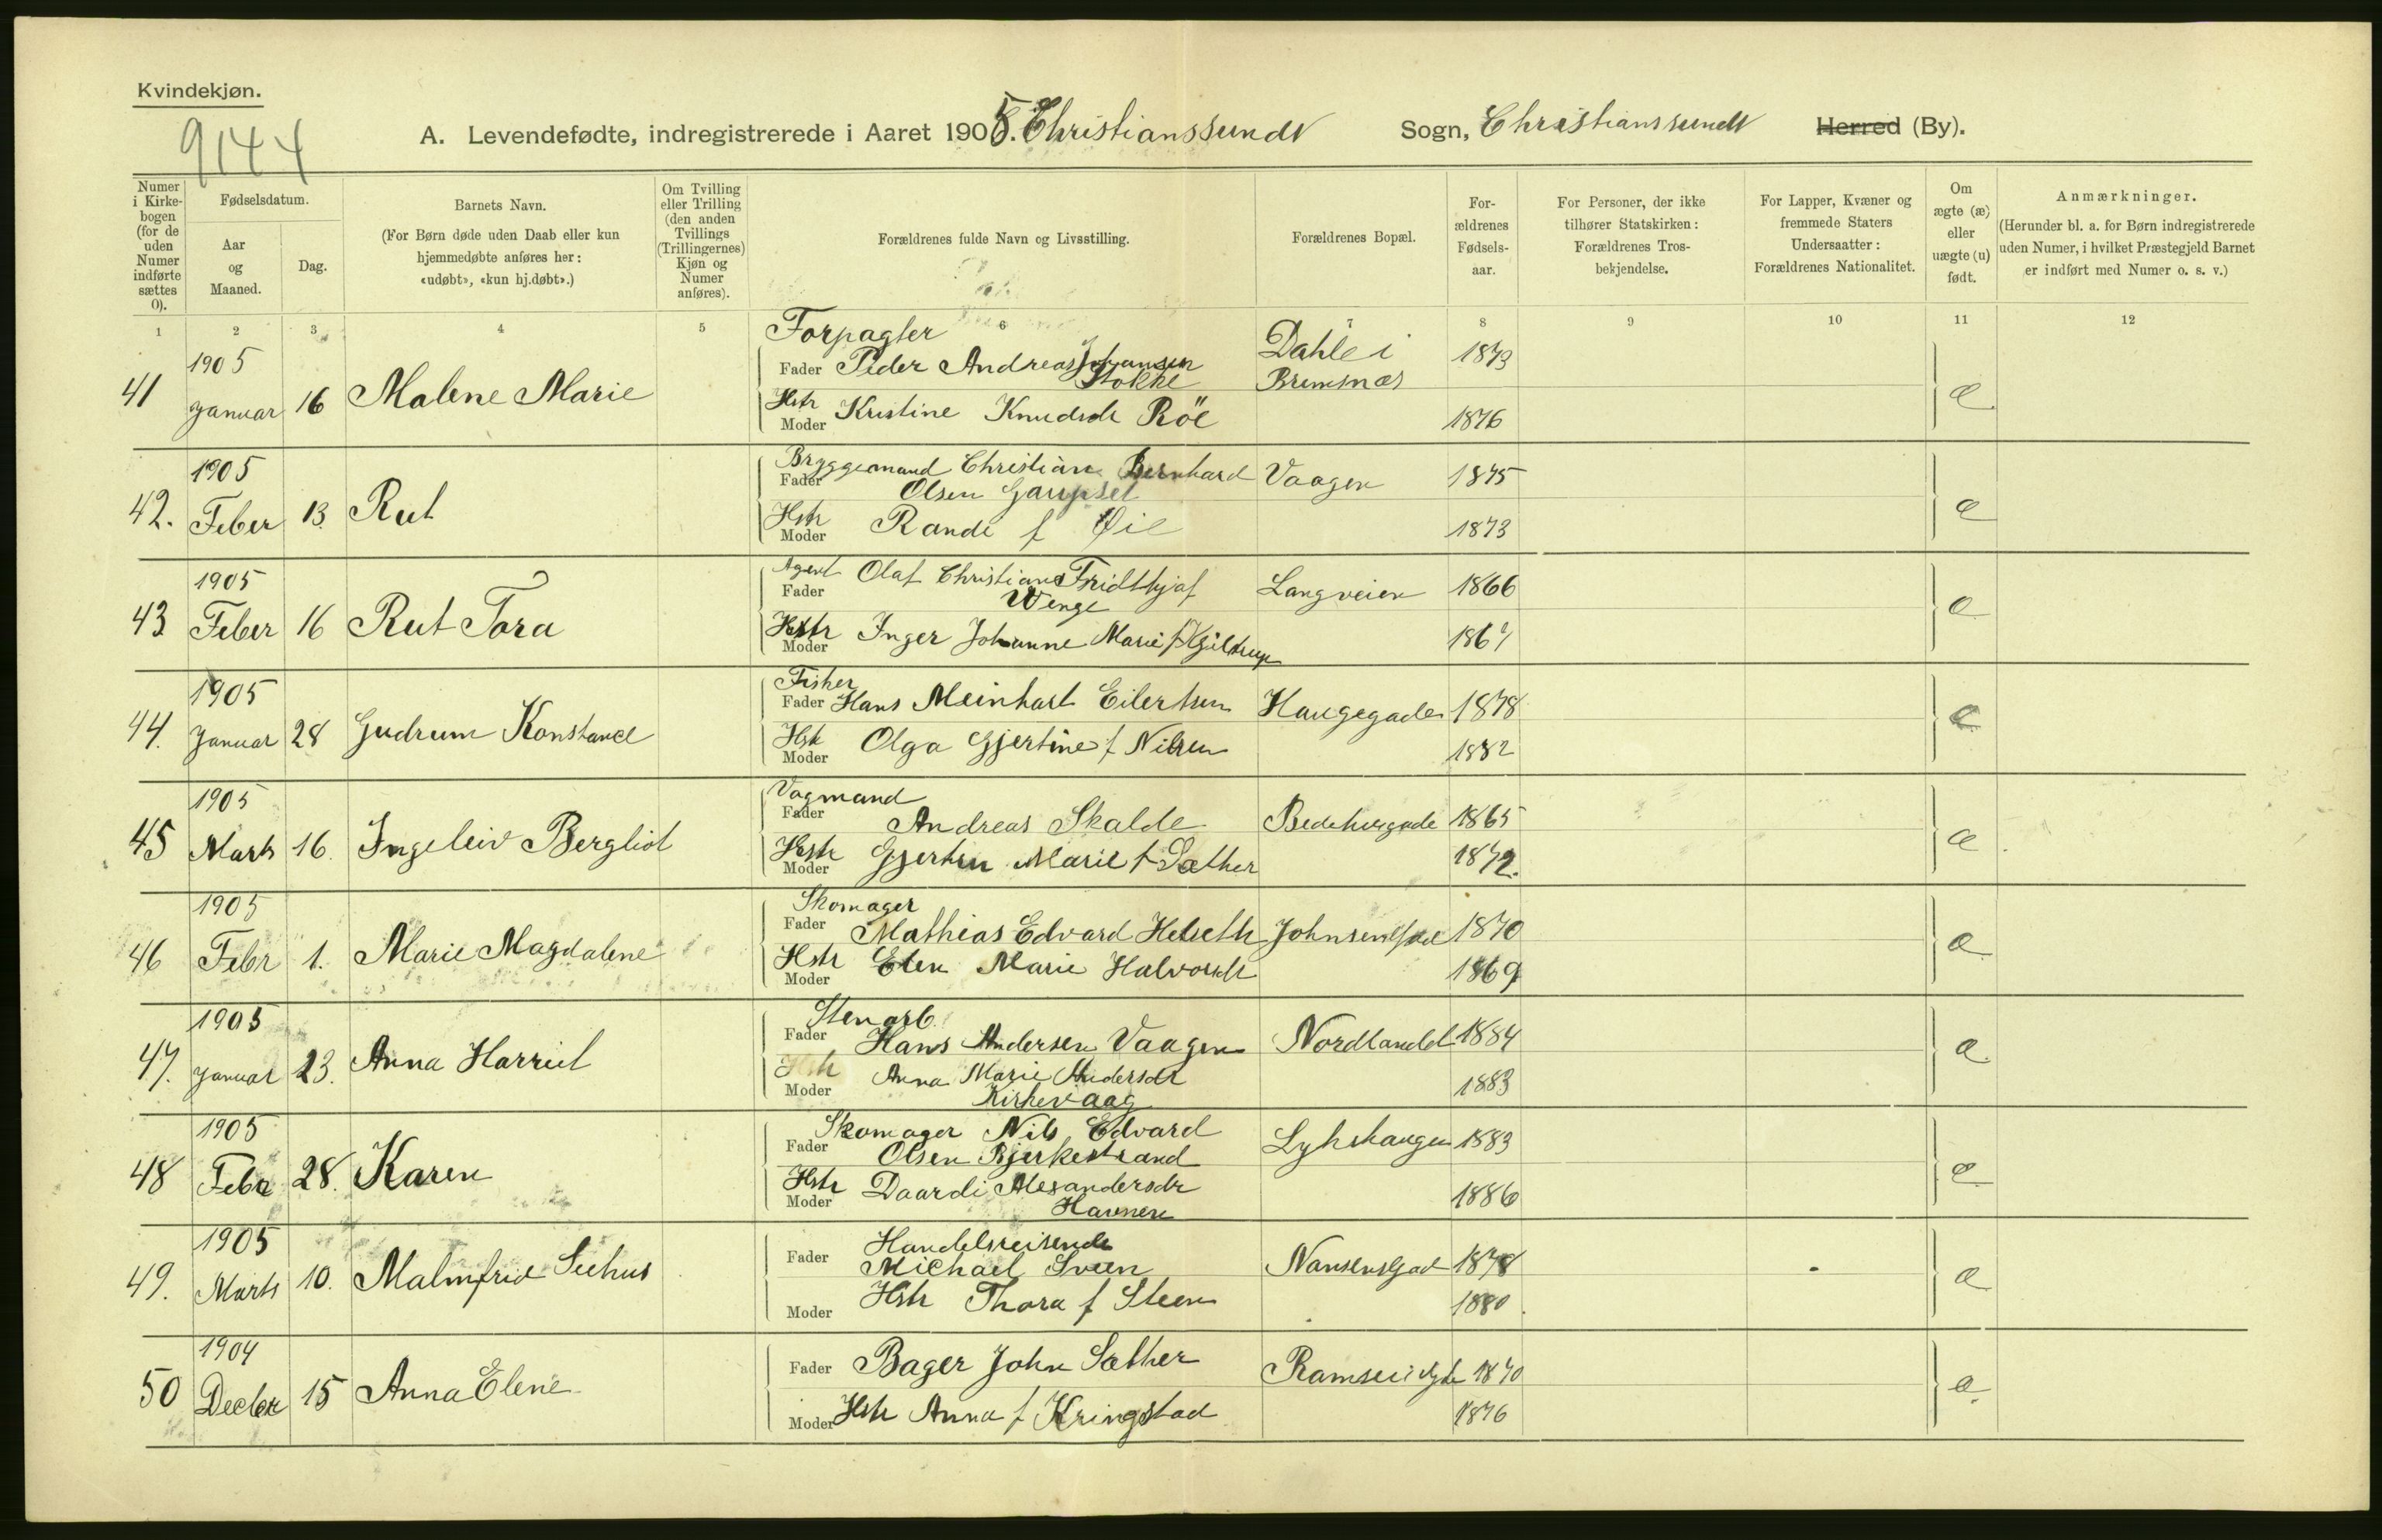 Kvindekjøn.
9144
A. Levendefødte, indregistrerede i Aaret 1905. Christianssunds Sogn, Christianssunds Herred (By).
Numer i Kirkebogen (for de uden Numer indførte sættes 0).
Fødselsdatum.
Aar og Maaned.
Dag.
Barnets Navn.
(For Børn døde uden Daab eller kun hjemmedøbte anføres her: «udøbt», «kun hj.døbt».)
Om Tvilling eller Trilling (den anden Tvillings (Trillingernes) Kjøn og Numer anføres).
Forældrenes fulde Navn og Livsstilling.
Forældrenes Bopæl.
Forældrenes Fødselsaar.
For Personer, der ikke tilhører Statskirken: Forældrenes Trosbekjendelse.
For Lapper, Kvæner og fremmede Staters Undersaatter: Forældrenes Nationalitet.
Om ægte (æ) eller uægte (u) født.
Anmærkninger.
(Herunder bl. a. for Børn indregistrerede uden Numer, i hvilket Præstegjeld Barnet er indført med Numer o. s. v.)
1 2 3 4 5 6 7 8 9 10 11 12
41 1905 Januar 16 Malene Marie
Forpagter
Fader Peder Andreas Johansen Stokke Dahle i Bremsnes 1873
Hstr Moder Kristine Knudsdr Röe 1876 æ
42. 1905 Feber 13. Rut
Bryggemand Fader Christian Bernhard Olsen Gaupset Vaagen 1875
Hstr Moder Randi f Øie 1873 æ
43 1905 Feber 16 Rut Tora
Agent Fader Olaf Christian Fridthjof Wenge Langveien 1866
Hstr Moder Inger Johanne Marie f 1867 æ
44. 1905 Januar 28 Gudrun Konstance
Fisker Fader Hans Meinhart Eilertsen Haugegaden 1878
Hstr Moder Olga Gjertine f Nilsen 1882 æ
45 1905 Marts 16. Ingeleiv Bergliot
Vogmand Fader Andreas Skalde 1865
Hstr Moder Gjertin Marie f Sæther 1872. æ
46 1905 Febr 1. Marie Magdalene
Skomager
Fader Mathias Edvard Helseth 1870
Hstr Moder Elen Marie Halvorsdr 1869 æ
47. 1905 Januar 23. Anna Harriet
Stenarb.
Fader Hans Andersen Vaagen Nordlandet 1884
Hstr Moder Anna Marie Andersdr Kirkevaag 1883 æ
48 1905 Febr 28. Karen
Skomager Fader Nils Edvard Olsen Bjerkestrand 1883
Hstr Moder Daardi Alexandersdr Havnen 1886 æ
49. 1905 Marts 10. Malmfrid Seehus
Handelsreisende
Fader Michael Sveen Nansensgad 1878
Moder Hstr Thora f Steen 1880 æ
50 1904 Decbr 15 Anna Elene
Fader Bager John Sæther 1870
Moder Hstr Anna f Kringstad 1876 æ